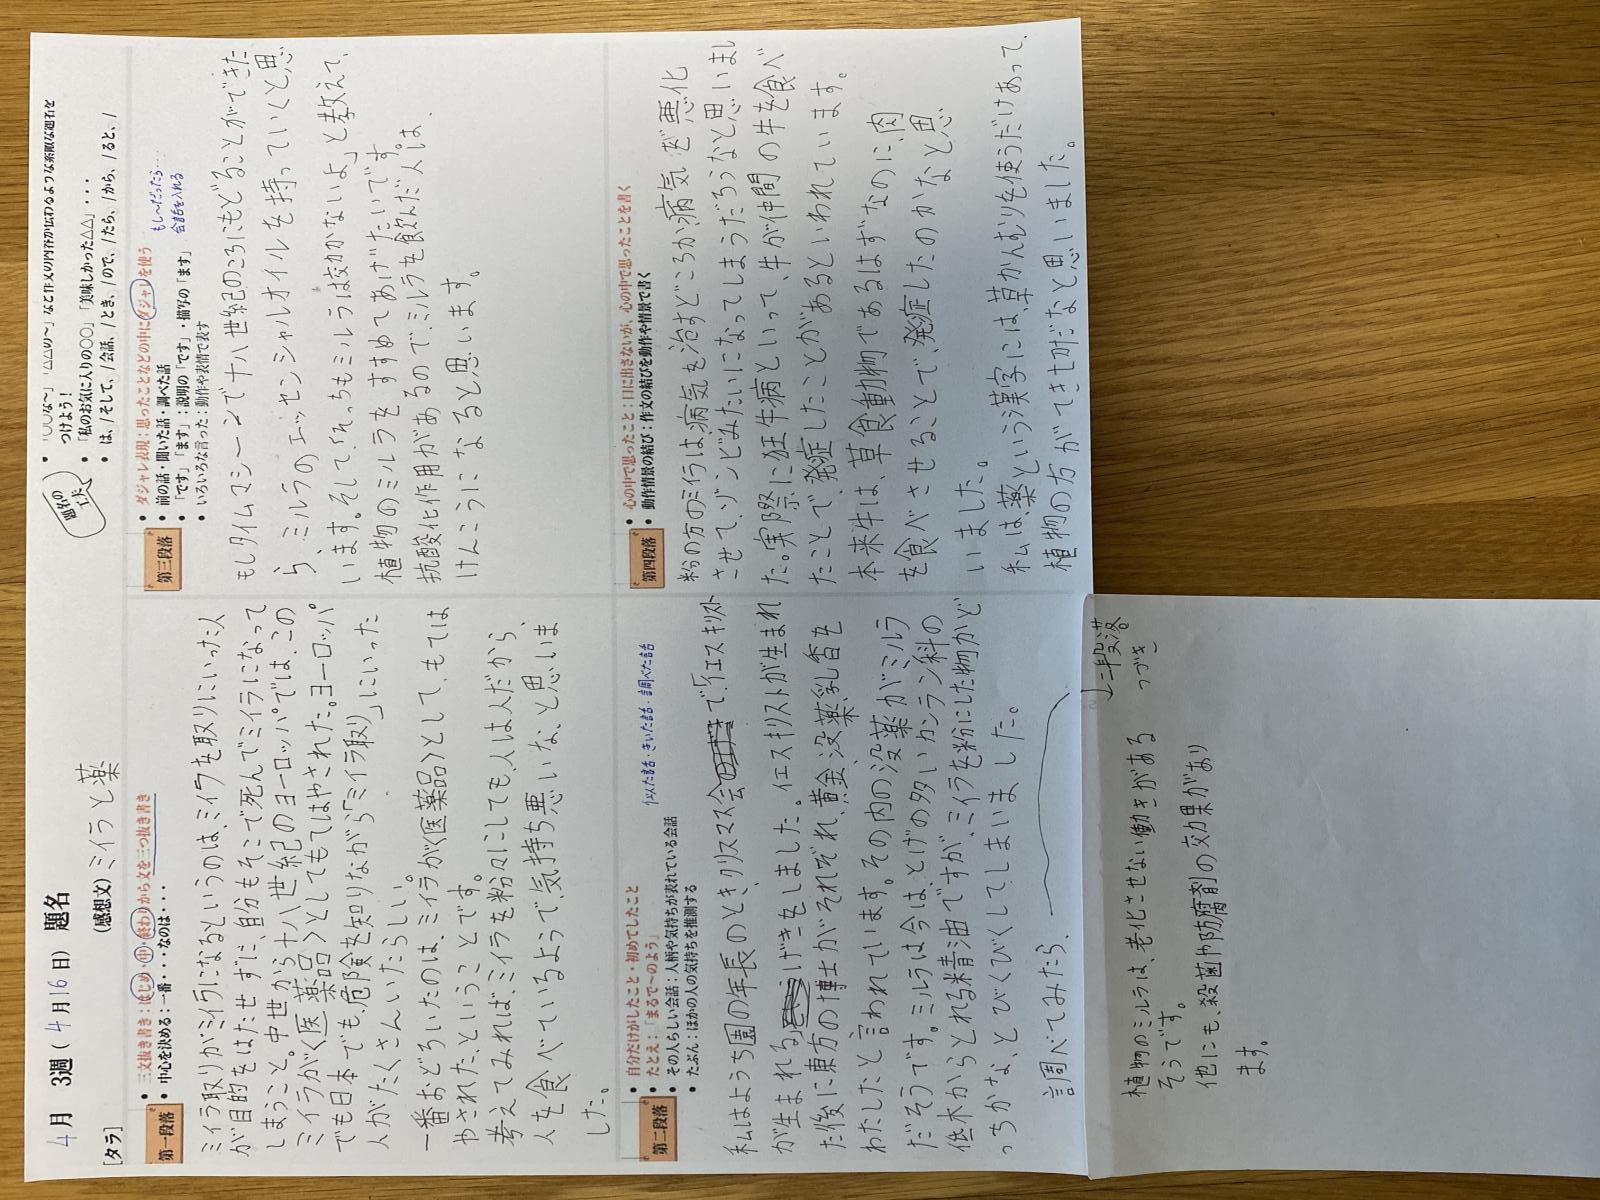 4月 3週(4月16日) 題名
[タラ]
(感想文) ミイラと薬
題名の工夫
• 「○○な〜」「△△の〜」など作文の内容が伝わるような素敵な題名を
つけよう！
• 「私のお気に入りの○○」「美味しかった△△」・・・
• は、/そして、/会話、/とき、/ので、/たら、/から、/ると、/
第一段落
• 三文抜き書き：はじめ・中・終わりから文を三つ抜き書き
• 中心を決める：一番・・・なのは・・・
ミイラ取りがミイラになるというのは、ミイラを取りにいった人
が目的をはたせずに、自分もそこで死んでミイラになって
しまうこと。中世から十八世紀のヨーロッパでは、この
ミイラがく医薬品＞としてもてはやされた。ヨーロッパ
でも日本でも、危険を知りながら「ミイラ取り」にいった
人がたくさんいたらしい。
一番おどろいたのは、ミイラがく医薬品＞として、もては
やされた、ということです。
考えてみれば、ミイラを粉々にしても、人は人だから、
人を食べているようで、気持ち悪いな、と思いま
した。
第二段落
• 自分だけがしたこと・初めてしたこと
• たとえ：「まるで〜のよう」
• その人らしい会話：人柄や気持ちが表れている会話
• たぶん：ほかの人の気持ちを推測する
似た話・きいた話・調べた話
私はようち園の年長のとき、クリスマス会で「イエスキリスト
が生まれる」げきをしました。イエスキリストが生まれ
た後に東方の博士がそれぞれ、黄金、没薬、乳香を
わたしたと言われています。その内の没薬がミルラ
だそうです。ミルラは今は、とげの多いカンラン科の
低木からとれる精油ですが、ミイラを粉にした物かど
っちかな、とびくびくしてしまいました。
調べてみたら、
二段落
つづき
植物のミルラは、老化させない働きがある
そうです。
他にも、殺菌や防腐剤の効果があり
ます。
第三段落
• ダジャレ表現：思ったことなどの中にダジャレを使う
• 前の話・聞いた話・調べた話
• 「です」「ます」：説明の「です」・描写の「ます」
• いろいろな言った：動作や表情で表す
もし〜だったら…
会話を入れる
もしタイムマシーンで十八世紀のころにもどることができた
ら、ミルラのエッセンシャルオイルを持っていくと思
います。そして、「そっちもミルラは効かないよ」と教えて、
植物のミルラをすすめてあげたいです。
抗酸化作用があるので、ミルラを飲んだ人は、
けんこうになると思います。
第四段落
• 心の中で思ったこと：口に出さないが、心の中で思ったことを書く
• 動作情景の結び：作文の結びを動作や情景で書く
粉の方のミイラは、病気を治すどころか病気を悪化
させて、ゾンビみたいになってしまうだろうなと思いまし
た。実際に狂牛病といって、牛が仲間の牛を食べ
たことで、発症したことがあるといわれています。
本来牛は、草食動物であるはずなのに、肉
を食べさせることで、発症したのかなと思
いました。
私は薬という漢字には、草かんむりを使うだけあって、
植物の方がてきせつだなと思いました。